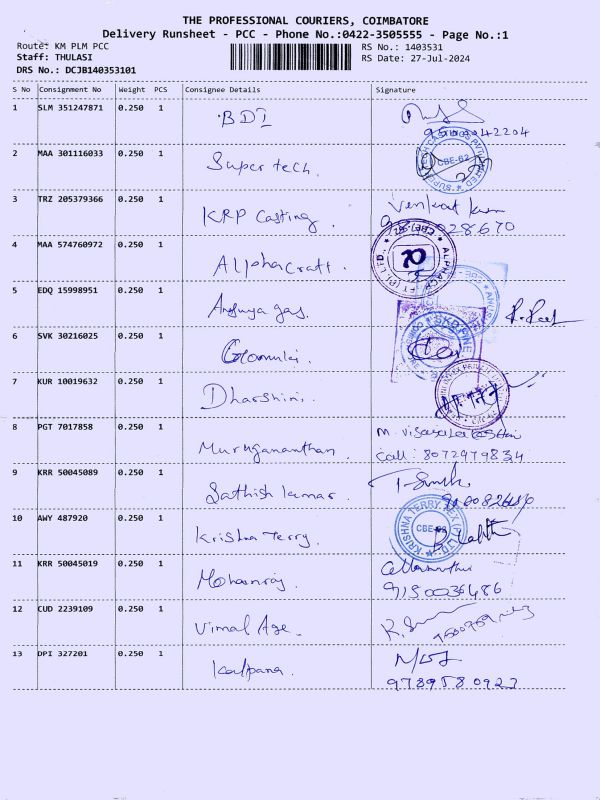 THE PROFESSIONAL COURIERS, COIMBATORE
Delivery Runsheet - PCC - Phone No.:0422-3505555 - Page No.:1
Route: KM PLM PCC
RS No.: 1403531
Staff: THULASI
RS Date: 27-Jul-2024
DRS No.: DCJB140353101
S No Consignment No Weight PCS Consignee Details Signature
1 SLM 351247871 0.250 1 BDI
2 MAA 301116033 0.250 1 Super tech.
CBE-62
3 TRZ 205379366 0.250 1 KRP Casting. Venkat
28670
4 MAA 574760972 0.250 1 Alphacraft.
ALPHACRAFT (P) LTD
5 EDQ 15998951 0.250 1 gas.
6 SVK 30216025 0.250 1
7 KUR 10019632 0.250 1 Dharshini.
8 PGT 7017858 0.250 1 Muruganathan. M. Visayalakshmi
Call: 8072979834
9 KRR 50045089 0.250 1 Sathish kumar.
10 AWY 487920 0.250 1 Krishna Terry.
KRISHNA TERRY TEX (P) LTD
11 KRR 50045019 0.250 1 Mohanraj
9150036486
12 CUD 2239109 0.250 1 Vimal Age.
13 DPI 327201 0.250 1 Kalpana.
9789580923